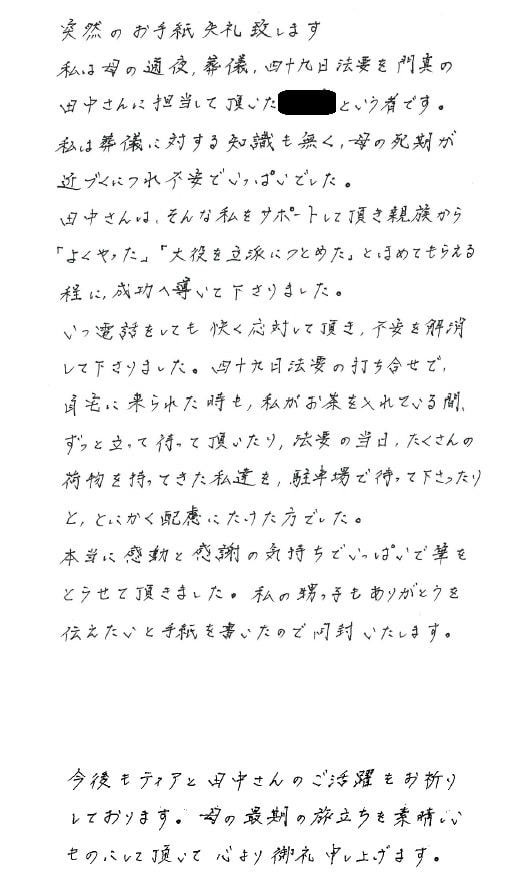 突然のお手紙失礼致します
私は母の通夜,葬儀,四十九日法要を門真の
田中さんに担当して頂いた という者です。
私は葬儀に対する知識も無く,母の死期が
近づくにつれ不安でいっぱいでした。
田中さんは,そんな私をサポートして頂き親族から
「よくやった」「大役を立派につとめた」とほめてもらえる
程に,成功へ導いて下さりました。
いつ電話をしても快く応対して頂き,不安を解消
して下さりました。四十九日法要の打ち合せで,
自宅に来られた時も,私がお茶を入れている間,
ずっと立って待って頂いたり,法要の当日,たくさんの
荷物を持ってきた私達を,駐車場で待って下さったり
と,とにかく配慮にたけた方でした。
本当に感動と感謝の気持ちでいっぱいで筆を
とらせて頂きました。私の甥っ子もありがとうを
伝えたいと手紙を書いたので同封いたします。
今後もティアと田中さんのご活躍をお祈り
しております。母の最期の旅立ちを素晴しい
ものにして頂いて心より御礼申し上げます。